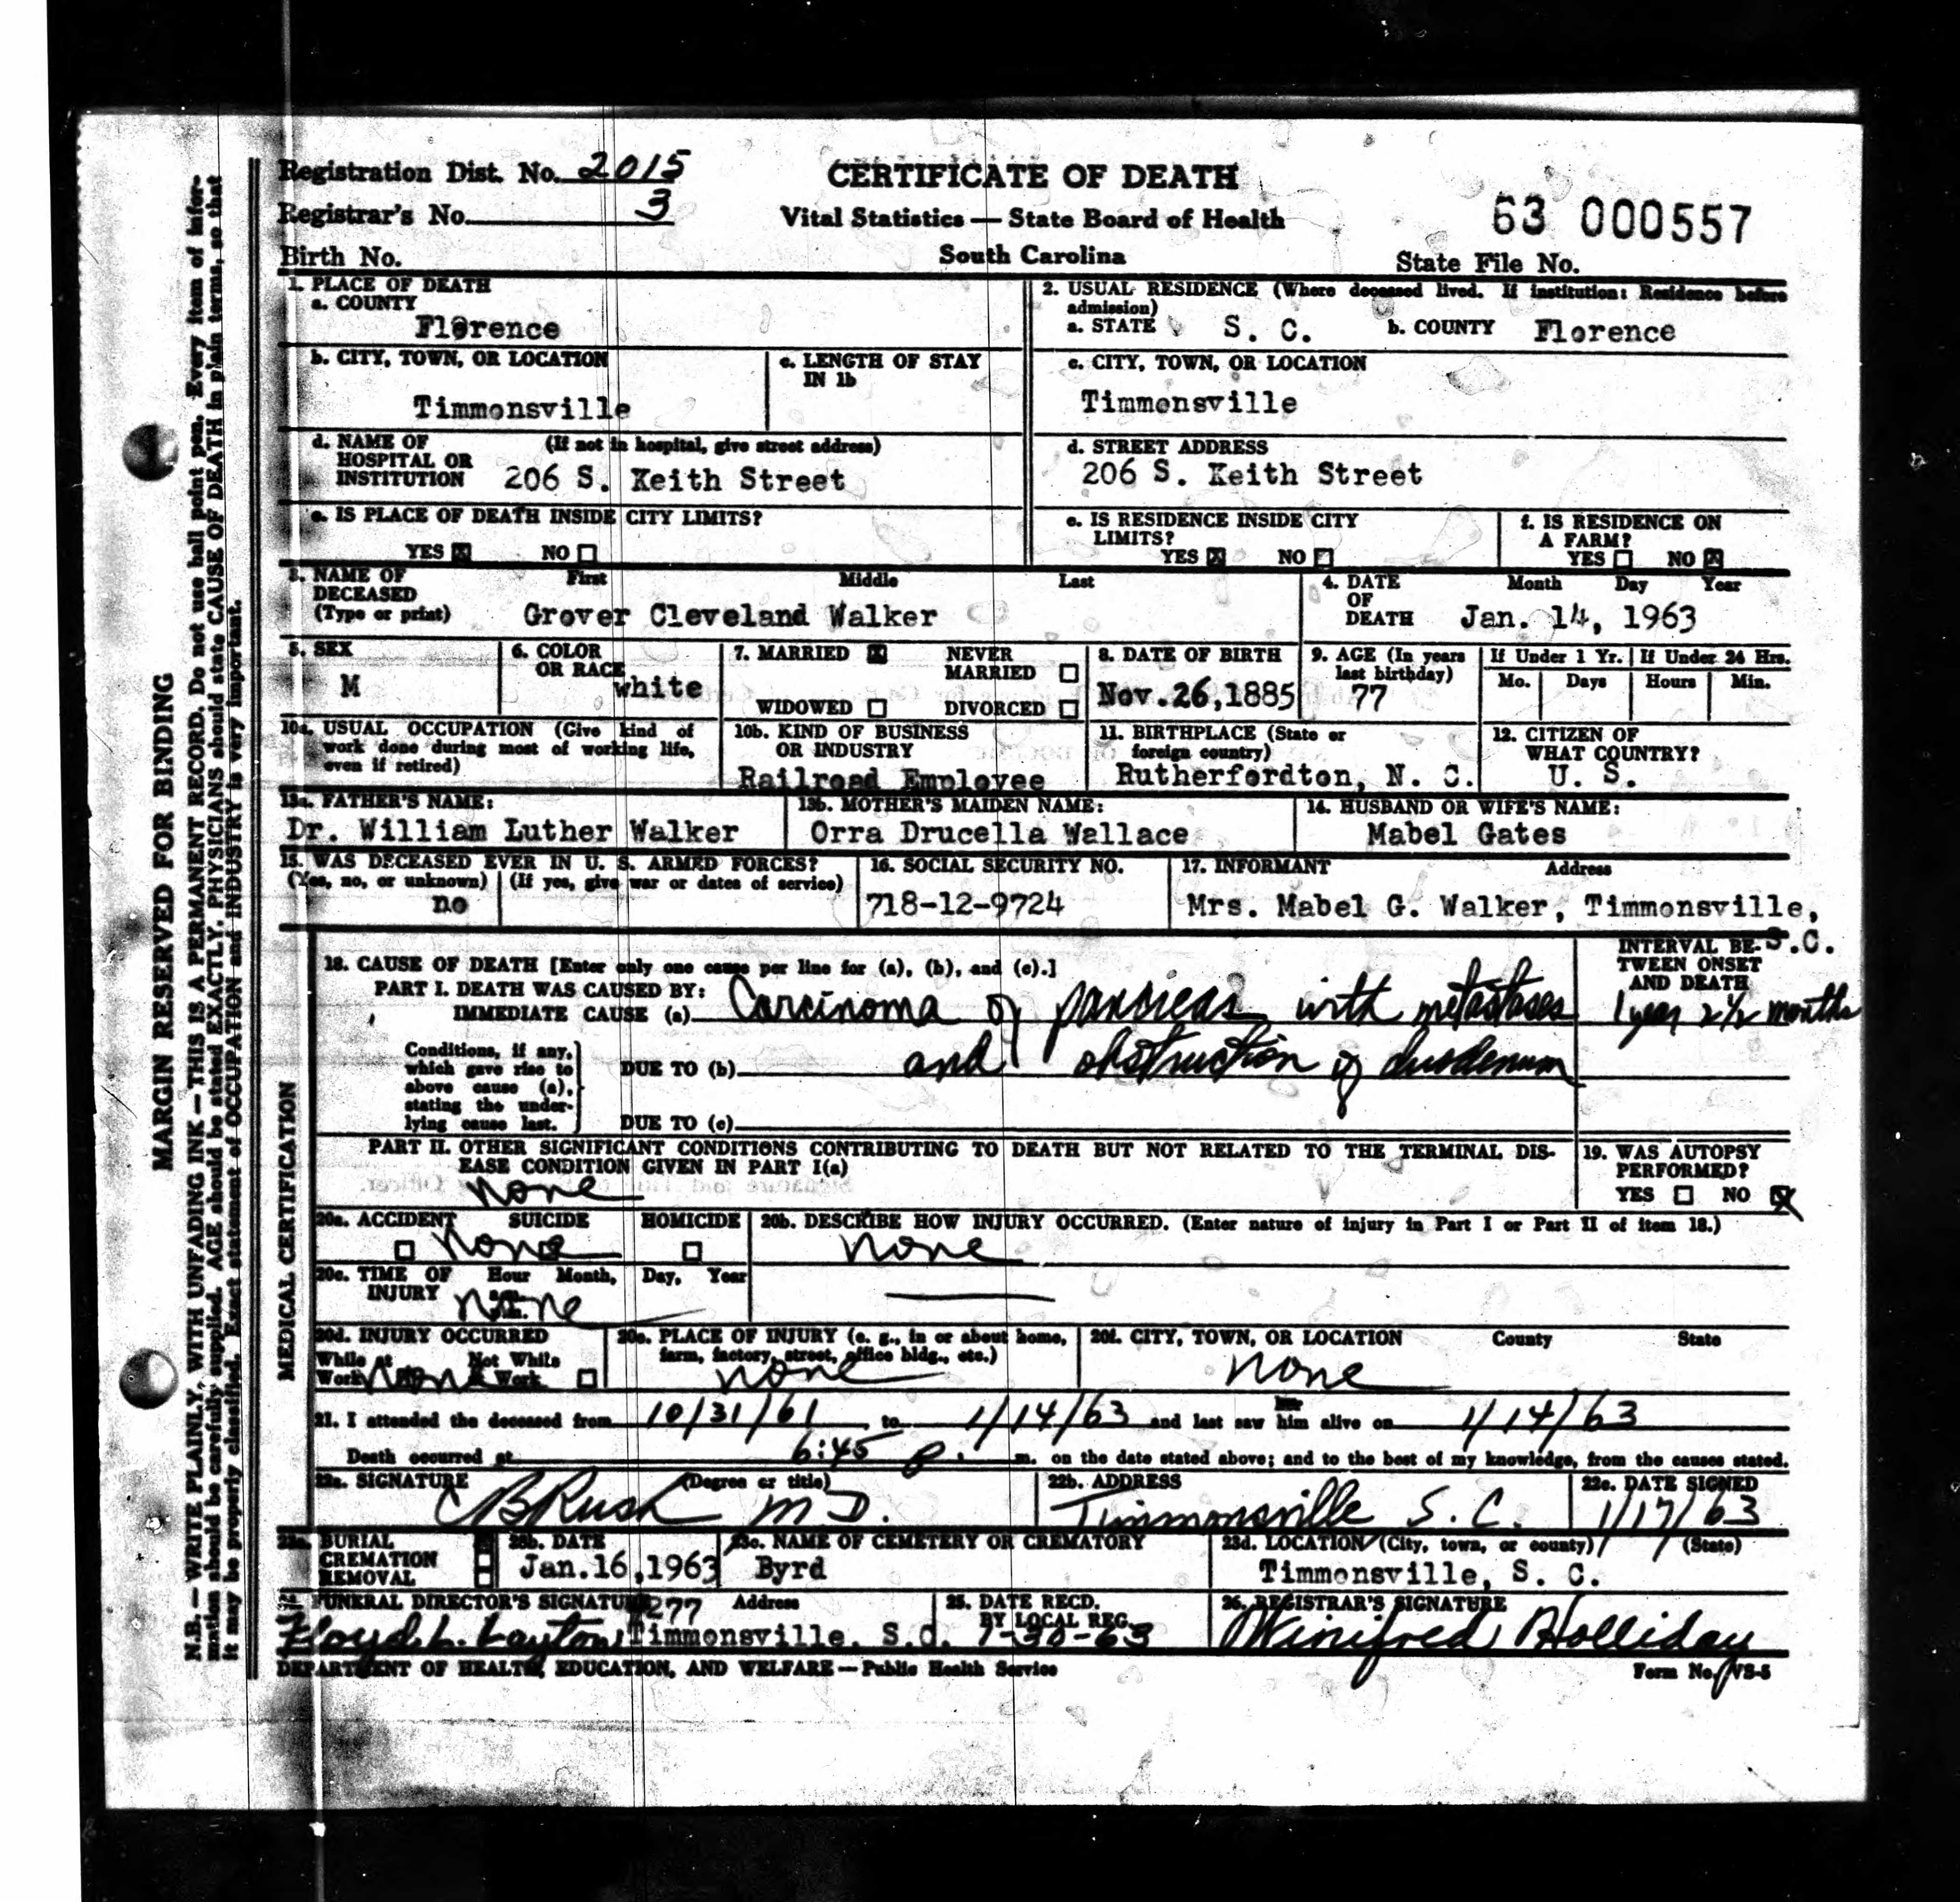 MARGIN RESERVED FOR BINDING
N.B.—WRITE PLAINLY, WITH UNFADING INK—THIS IS A PERMANENT RECORD. Do not use ball point pen. Every item of infor-
mation should be carefully supplied. AGE should be stated EXACTLY. PHYSICIANS should state CAUSE OF DEATH in plain terms, so that
it may be properly classified. Exact statement of OCCUPATION and INDUSTRY is very important.
Registration Dist. No. 2015
Registrar's No. 3
Birth No.
CERTIFICATE OF DEATH
Vital Statistics — State Board of Health
South Carolina
63 000557
State File No.
1. PLACE OF DEATH
a. COUNTY
Florence
2. USUAL RESIDENCE (Where deceased lived. If institution: Residence before
admission)
a. STATE S. C. b. COUNTY Florence
b. CITY, TOWN, OR LOCATION
Timmonsville
c. LENGTH OF STAY
IN 1b
c. CITY, TOWN, OR LOCATION
Timmonsville
d. NAME OF (If not in hospital, give street address)
HOSPITAL OR
INSTITUTION 206 S. Keith Street
d. STREET ADDRESS
206 S. Keith Street
e. IS PLACE OF DEATH INSIDE CITY LIMITS?
YES NO
e. IS RESIDENCE INSIDE CITY
LIMITS?
YES NO
f. IS RESIDENCE ON
A FARM?
YES NO
3. NAME OF First Middle Last
DECEASED
(Type or print) Grover Cleveland Walker
4. DATE Month Day Year
OF
DEATH Jan. 14, 1963
5. SEX
M
6. COLOR
OR RACE
white
7. MARRIED NEVER
MARRIED
WIDOWED DIVORCED
8. DATE OF BIRTH
Nov.26,1885
9. AGE (In years
last birthday)
77
If Under 1 Yr. If Under 24 Hrs.
Mo. Days Hours Min.
10a. USUAL OCCUPATION (Give kind of
work done during most of working life,
even if retired)
10b. KIND OF BUSINESS
OR INDUSTRY
Railroad Employee
11. BIRTHPLACE (State or
foreign country)
Rutherfordton, N. C.
12. CITIZEN OF
WHAT COUNTRY?
U. S.
13a. FATHER'S NAME:
Dr. William Luther Walker
13b. MOTHER'S MAIDEN NAME:
Orra Drucella Wallace
14. HUSBAND OR WIFE'S NAME:
Mabel Gates
15. WAS DECEASED EVER IN U. S. ARMED FORCES?
(Yes, no, or unknown) (If yes, give war or dates of service)
no
16. SOCIAL SECURITY NO.
718-12-9724
17. INFORMANT Address
Mrs. Mabel G. Walker, Timmonsville,
S.C.
MEDICAL CERTIFICATION
18. CAUSE OF DEATH [Enter only one cause per line for (a), (b), and (c).]
PART I. DEATH WAS CAUSED BY:
IMMEDIATE CAUSE (a) Carcinoma of pancreas with metastases
INTERVAL BE-
TWEEN ONSET
AND DEATH
1 year 2 1/2 months
Conditions, if any,
which gave rise to
above cause (a),
stating the under-
lying cause last.
DUE TO (b) and obstruction of duodenum
DUE TO (c)
PART II. OTHER SIGNIFICANT CONDITIONS CONTRIBUTING TO DEATH BUT NOT RELATED TO THE TERMINAL DIS-
EASE CONDITION GIVEN IN PART I(a)
none
19. WAS AUTOPSY
PERFORMED?
YES NO
20a. ACCIDENT SUICIDE HOMICIDE
none
20b. DESCRIBE HOW INJURY OCCURRED. (Enter nature of injury in Part I or Part II of item 18.)
none
20c. TIME OF Hour Month, Day, Year
INJURY none
20d. INJURY OCCURRED
While at Not While
Work none Work
20e. PLACE OF INJURY (e. g., in or about home,
farm, factory, street, office bldg., etc.)
none
20f. CITY, TOWN, OR LOCATION County State
none
21. I attended the deceased from 10/31/61 to 1/14/63 and last saw him alive on 1/14/63
her
Death occurred at 6:45 p. m. on the date stated above; and to the best of my knowledge, from the causes stated.
22a. SIGNATURE (Degree or title)
CBRush MD.
22b. ADDRESS
Timmonsville S. C.
22c. DATE SIGNED
1/17/63
23a. BURIAL
CREMATION
REMOVAL
23b. DATE
Jan.16,1963
23c. NAME OF CEMETERY OR CREMATORY
Byrd
23d. LOCATION (City, town, or county) (State)
Timmonsville, S. C.
24. FUNERAL DIRECTOR'S SIGNATURE 277 Address
Floyd L. Layton, Timmonsville, S.C.
25. DATE RECD.
BY LOCAL REG.
1-30-63
26. REGISTRAR'S SIGNATURE
Winifred Holliday
DEPARTMENT OF HEALTH, EDUCATION, AND WELFARE—Public Health Service
Form No. VS-5